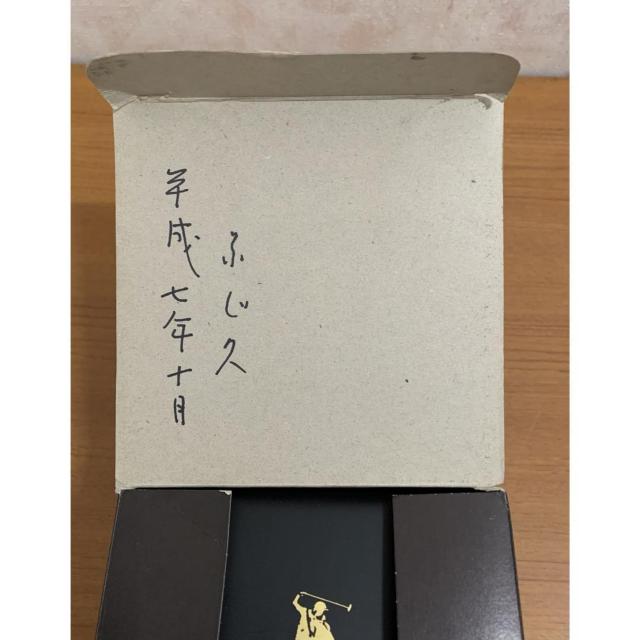 ふじ久
平成七年十月